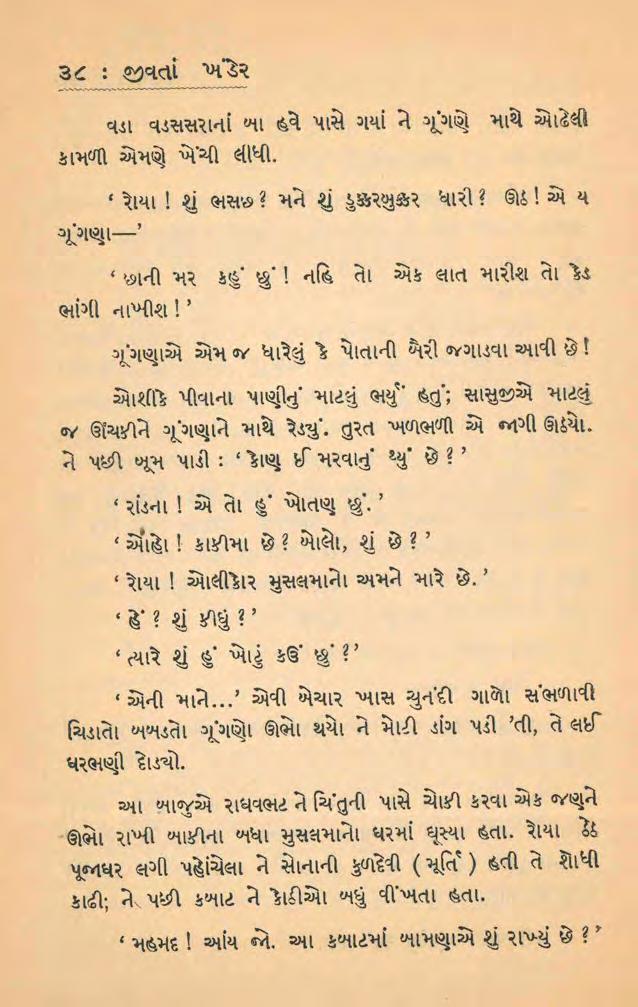 ૩૮ : જીવતાં ખંડેર
વડા વડસસરાનાં બા હવે પાસે ગયાં ને ગૂંગણે માથે ઓઢેલી
કામળી એમણે ખેંચી લીધી.
‘ રોયા ! શું ભસછ ? મને શું ડુક્કરબુક્કર ધારી ? ઊઠ ! એ ય
ગૂંગણા—’
‘ છાની મર કહું છું ! નહિ તો એક લાત મારીશ તો કેડ
ભાંગી નાખીશ ! ’
ગૂંગણાએ એમ જ ધારેલું કે પોતાની બૈરી જગાડવા આવી છે !
ઓશીકે પીવાના પાણીનું માટલું ભર્યું હતું; સાસુજીએ માટલું
જ ઊંચકીને ગૂંગણાને માથે રેડ્યું. તુરત ખળભળી એ જાગી ઊઠ્યો.
ને પછી બૂમ પાડી : ‘ કોણ ઈ મરવાનું થ્યું છે ? ’
‘ રાંડના ! એ તો હું ખોતણ છું. ’
‘ ઓહો ! કાકીમા છે ? બોલો, શું છે ? ’
‘ રોયા ! ઓલીકોર મુસલમાનો અમને મારે છે. ’
‘ હેં ? શું કીધું ? ’
‘ ત્યારે શું હું ખોટું કઉં છું ?’
‘ એની માને...’ એવી બેચાર ખાસ ચુનંદી ગાળો સંભળાવી
ચિડાતો બબડતો ગૂંગણો ઊભો થયો ને મોટી ડાંગ પડી ’તી, તે લઈ
ઘરભણી દોડ્યો.
આ બાજુએ રાઘવભટ ને ચિંતુની પાસે ચોકી કરવા એક જણને
ઊભો રાખી બાકીના બધા મુસલમાનો ઘરમાં ઘૂસ્યા હતા. રોયા ઠેઠ
પૂજાઘર લગી પહોંચેલા ને સોનાની કુળદેવી ( મૂર્તિ ) હતી તે શોધી
કાઢી; ને પછી કબાટ ને કોઠીઓ બધું વીંખતા હતા.
‘ મહમદ ! આંય જો. આ કબાટમાં બામણાએ શું રાખ્યું છે ? ’